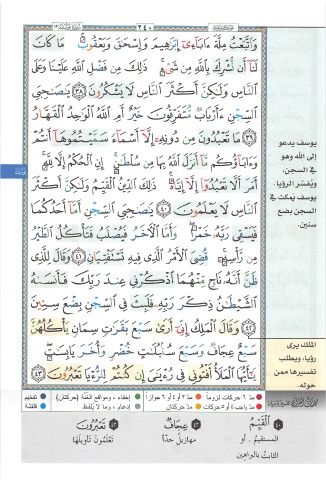 ٢٤٠
وَٱتَّبَعْتُ مِلَّةَ ءَابَآءِىٓ إِبْرَٰهِيمَ وَإِسْحَٰقَ وَيَعْقُوبَ ۚ مَا كَانَ
لَنَآ أَن نُّشْرِكَ بِٱللَّهِ مِن شَىْءٍ ۚ ذَٰلِكَ مِن فَضْلِ ٱللَّهِ عَلَيْنَا وَعَلَى
ٱلنَّاسِ وَلَٰكِنَّ أَكْثَرَ ٱلنَّاسِ لَا يَشْكُرُونَ ٣٨ يَٰصَٰحِبَىِ
ٱلسِّجْنِ ءَأَرْبَابٌ مُّتَفَرِّقُونَ خَيْرٌ أَمِ ٱللَّهُ ٱلْوَٰحِدُ ٱلْقَهَّارُ
٣٩ مَا تَعْبُدُونَ مِن دُونِهِۦٓ إِلَّآ أَسْمَآءً سَمَّيْتُمُوهَآ أَنتُمْ
وَءَابَآؤُكُم مَّآ أَنزَلَ ٱللَّهُ بِهَا مِن سُلْطَٰنٍ ۚ إِنِ ٱلْحُكْمُ إِلَّا لِلَّهِ ۚ
أَمَرَ أَلَّا تَعْبُدُوٓا۟ إِلَّآ إِيَّاهُ ۚ ذَٰلِكَ ٱلدِّينُ ٱلْقَيِّمُ وَلَٰكِنَّ أَكْثَرَ
ٱلنَّاسِ لَا يَعْلَمُونَ ٤٠ يَٰصَٰحِبَىِ ٱلسِّجْنِ أَمَّآ أَحَدُكُمَا
فَيَسْقِى رَبَّهُۥ خَمْرًا ۖ وَأَمَّا ٱلْءَاخَرُ فَيُصْلَبُ فَتَأْكُلُ ٱلطَّيْرُ
مِن رَّأْسِهِۦ ۚ قُضِىَ ٱلْأَمْرُ ٱلَّذِى فِيهِ تَسْتَفْتِيَانِ ٤١ وَقَالَ لِلَّذِى
ظَنَّ أَنَّهُۥ نَاجٍ مِّنْهُمَا ٱذْكُرْنِى عِندَ رَبِّكَ فَأَنسَىٰهُ
ٱلشَّيْطَٰنُ ذِكْرَ رَبِّهِۦ فَلَبِثَ فِى ٱلسِّجْنِ بِضْعَ سِنِينَ
٤٢ وَقَالَ ٱلْمَلِكُ إِنِّىٓ أَرَىٰ سَبْعَ بَقَرَٰتٍ سِمَانٍ يَأْكُلُهُنَّ
سَبْعٌ عِجَافٌ وَسَبْعَ سُنۢبُلَٰتٍ خُضْرٍ وَأُخَرَ يَابِسَٰتٍ ۖ
يَٰٓأَيُّهَا ٱلْمَلَأُ أَفْتُونِى فِى رُءْيَٰىَ إِن كُنتُمْ لِلرُّءْيَا تَعْبُرُونَ ٤٣
يوسف يدعو
إلى الله وهو
في السجن،
ويُفسّر الرؤيا.
يوسف يمكث في
السجن بضع
سنين.
الملك يرى
رؤيا، ويطلب
تفسيرها ممن
حوله.
مدّ ٦ حركات لزوماً مدّ ٢ أو ٤ أو ٦ جوازاً إخفاء، ومواقع الغُنَّة (حركتان) تفخيم
مدّ واجب ٤ أو ٥ حركات مدّ حركتان إدغام، وما لا يُلفَظ قلقلة
٤٠ ٱلْقَيِّمُ ٤٣ عِجَافٌ ٤٣ تَعْبُرُونَ
المستقيم، أو مهازيل جدّاً تعلمُون تأويلها
الثابت بالبراهين